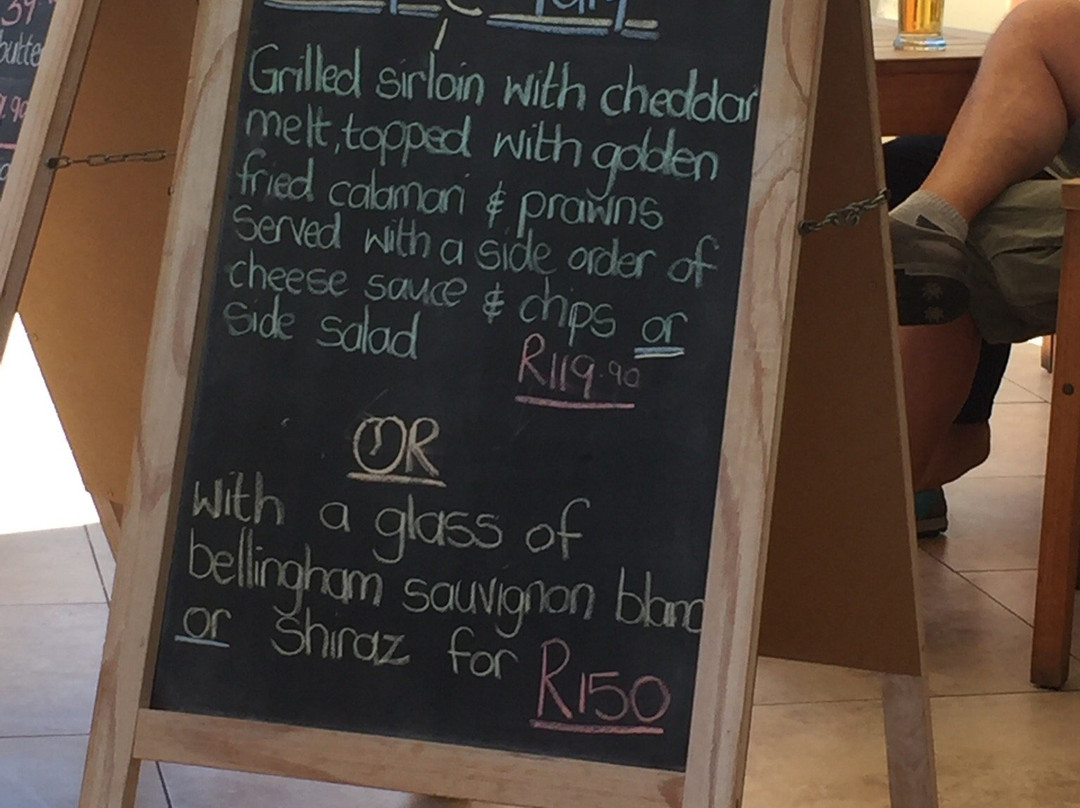 Grilled sirloin with cheddar
melt, topped with golden
fried calamari & prawns
Served with a side order of
cheese sauce & chips or
side salad
R119.90
OR
With a glass of
bellingham sauvignon blanc
or Shiraz for R150